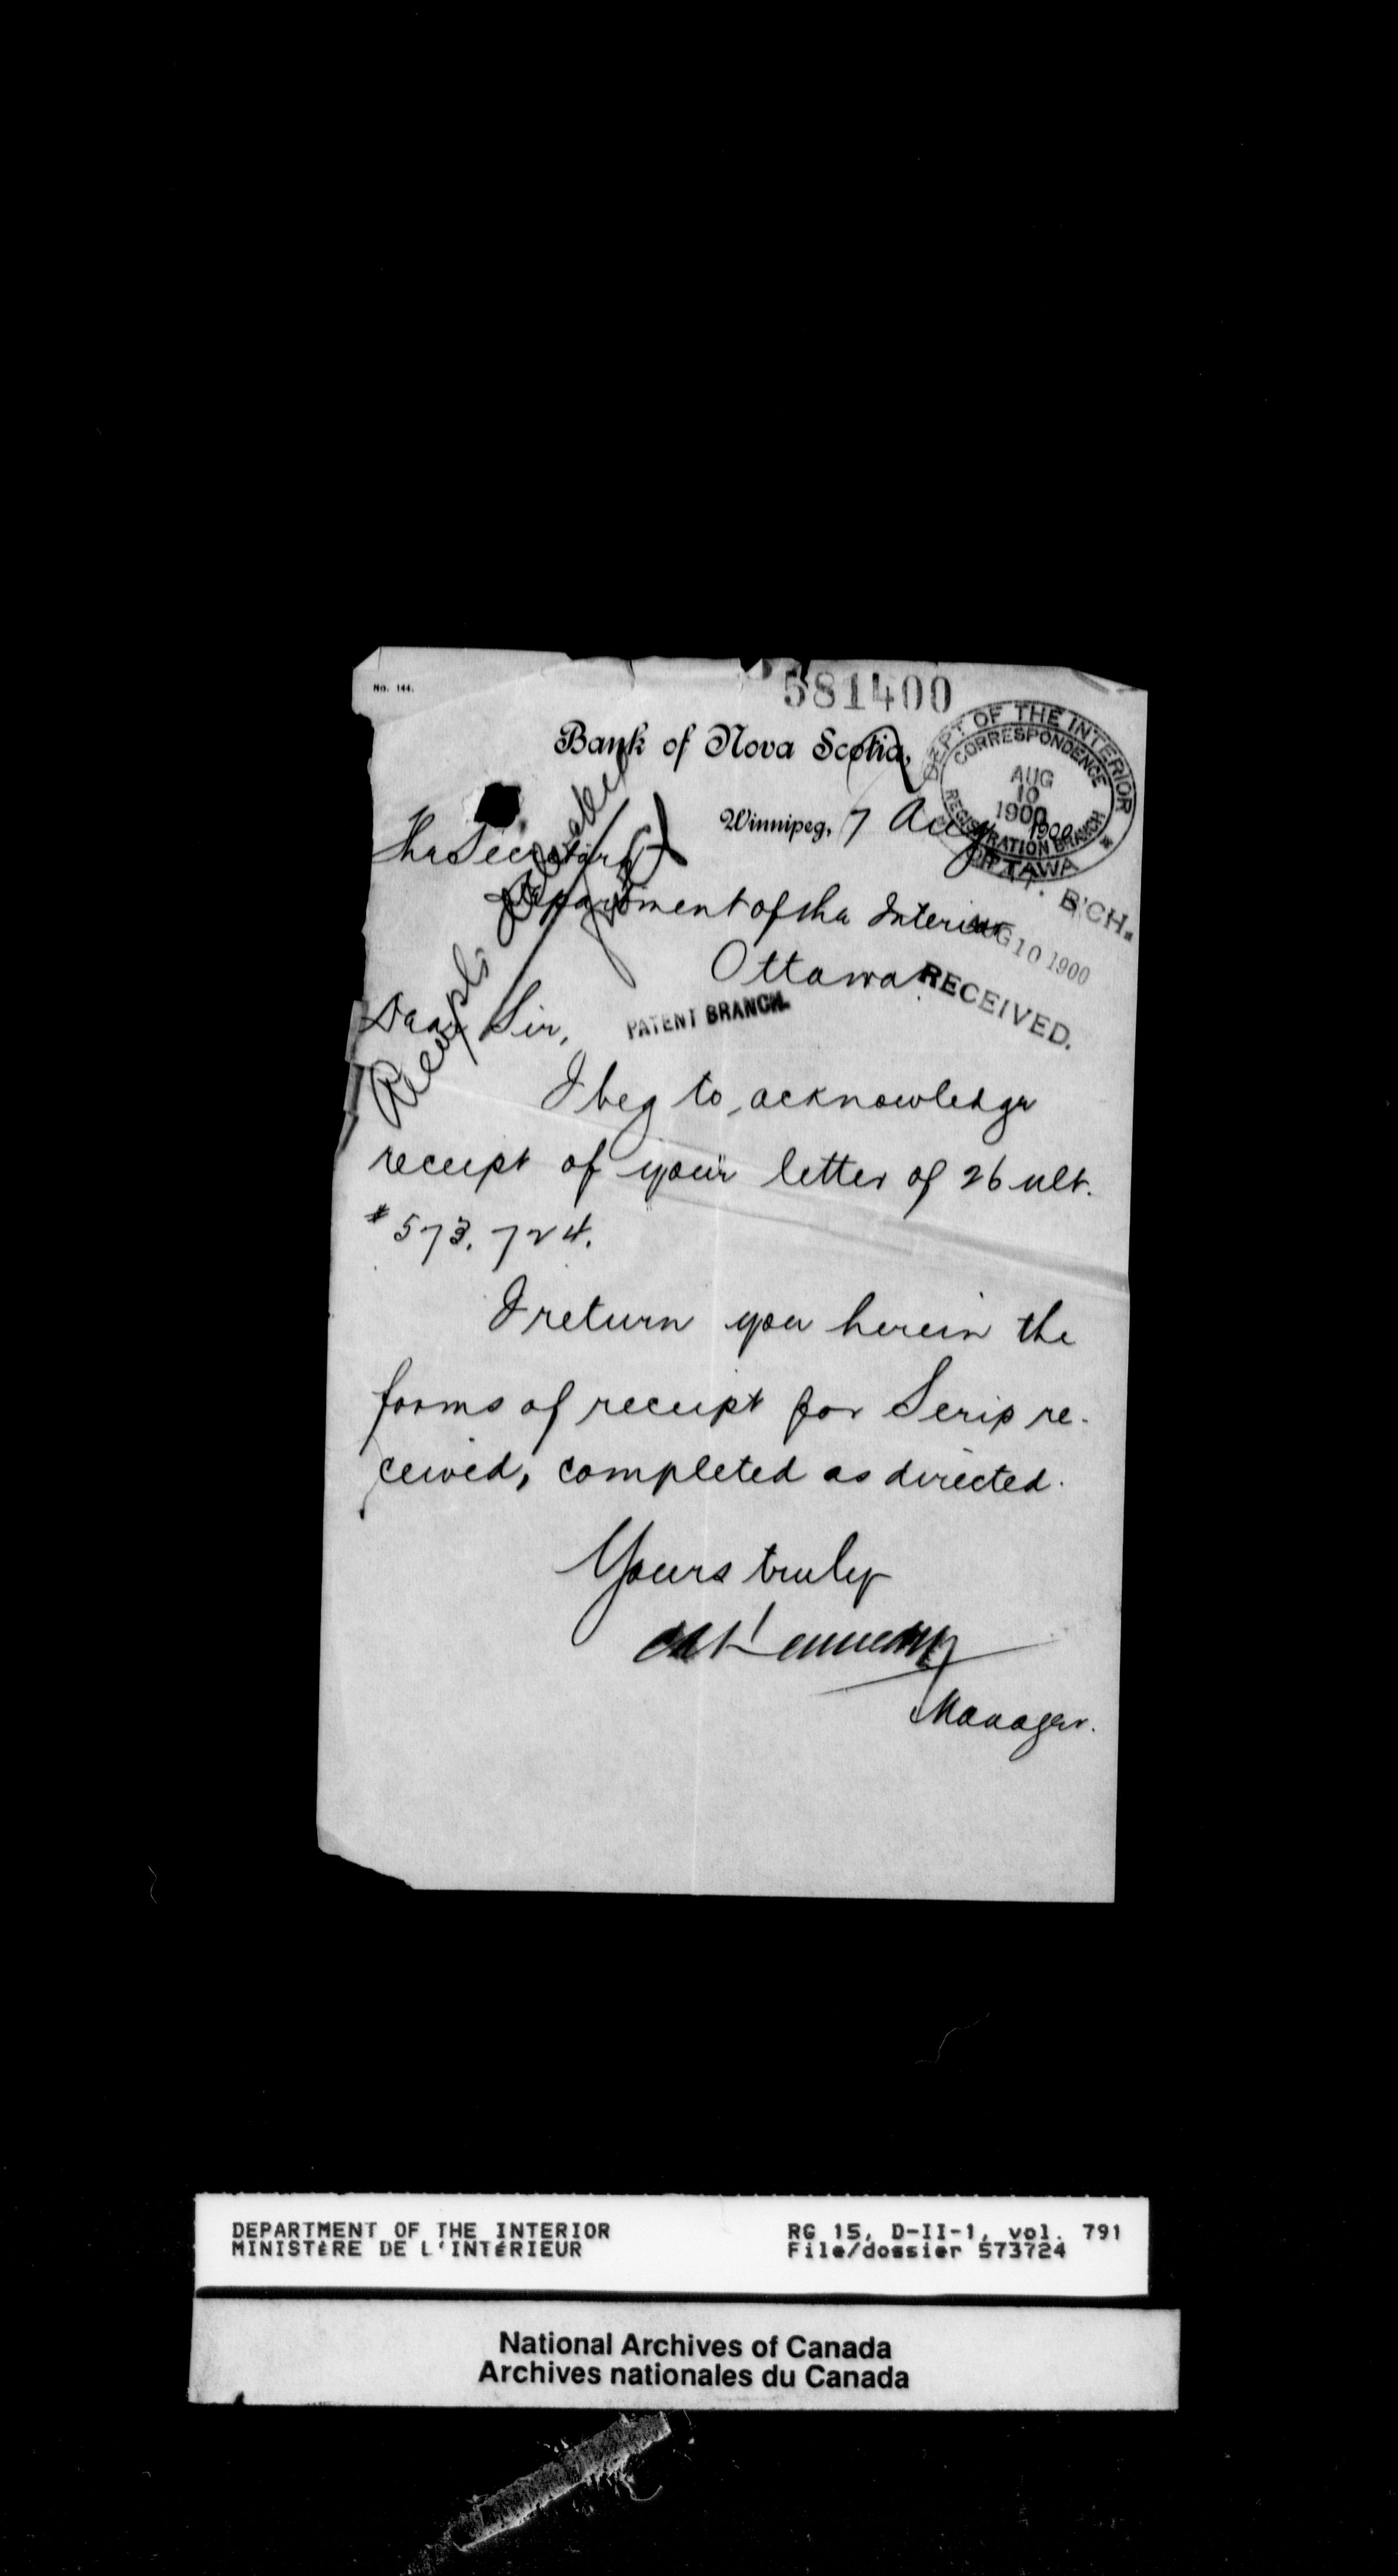 No. 144.
581400
Bank of Nova Scotia,
DEPT OF THE INTERIOR
CORRESPONDENCE
AUG
10
1900
REGISTRATION BRANCH
OTTAWA
Winnipeg, 7 Aug 1900
The Secretary
Department of the Interior
B'CH.
AUG 10 1900
Ottawa.
RECEIVED.
PATENT BRANCH.
Receipts
Dear Sir,
I beg to acknowledge
receipt of your letter of 26 ult.
# 573.724.
I return you herein the
forms of receipt for Scrip re-
ceived, completed as directed.
Yours truly
Kennedy
Manager.
DEPARTMENT OF THE INTERIOR
MINISTÈRE DE L'INTÉRIEUR
RG 15, D-II-1, vol. 791
File/dossier 573724
National Archives of Canada
Archives nationales du Canada